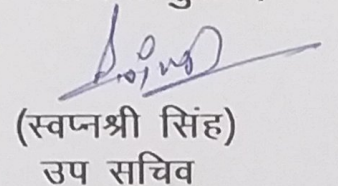 (स्वप्नश्री सिंह)
उप सचिव